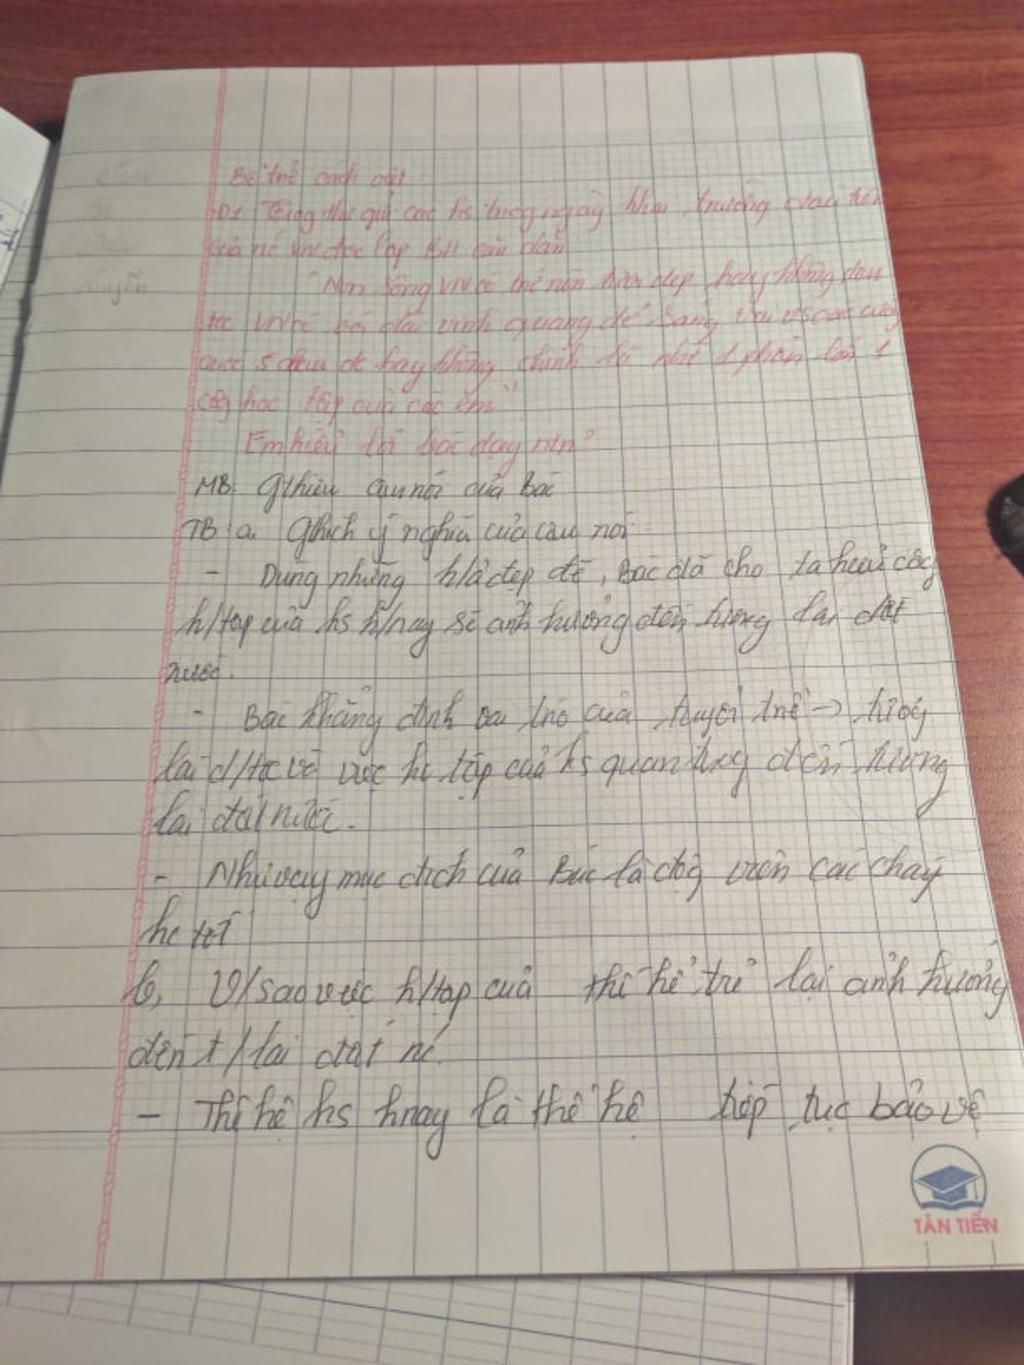 Đ1 Trong thư gửi các hs trong ngày khai trường đầu tiên
của nc VN độc lập BH căn dặn
"Non sông VN có trở nên tươi đẹp hay không dân
tộc VN có đài vinh quang để sánh vai vs các cường
quốc 5 châu đc hay không chính là nhờ 1 phần lớn
công học tập của các em"
Em hiểu lời bác dạy ntn?
MB: Gthiệu câu nói của Bác
TB a. Gthích ý nghĩa của câu nói
- Dùng những h/a đẹp đẽ, Bác đã cho ta hiểu công
h/tập của hs h/nay sẽ ảnh hưởng đến tương lai đất
nước.
- Bác khẳng định vai trò của tuổi trẻ → tương
lai d/tộc về việc hc tập của hs quan trọng đến tương
lai đất nước.
- Như vậy mục đích của Bác là động viên các cháu
hc tốt
b, V/sao việc h/tập của thế hệ trẻ lại ảnh hưởng
đến t/lai đất nc.
- Thế hệ hs hnay là thế hệ tiếp tục bảo vệ
TÂN TIẾN